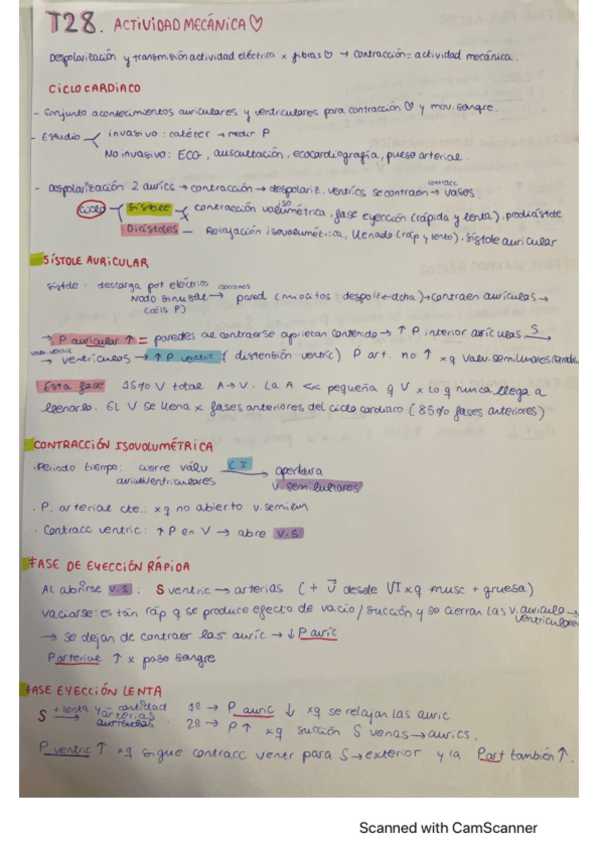 T28. ACTIVIDAD MECÁNICA ♡
Despolarización y transmisión actividad eléctrica x fibras ♡ → contracción = actividad mecánica.
CICLO CARDIACO
- Conjunto acontecimientos auriculares y ventriculares para contracción ♡ y mov. sangre.
- Estudio invasivo : catéter → medir P
No invasivo: ECG, auscultación, ecocardiografía, pulso arterial.
- Despolarización 2 aurics → contracción → despolariz. ventrics se contraen → contracc vasos.
Ciclo Sístole contracción isovolumétrica, fase eyección (rápida y lenta).
Diástoles - Relajación isovolumétrica, llenado (ráp y lento). Sístole auricular
SÍSTOLE AURICULAR
sístole : descarga pot eléctrico
Nodo sinusal → pared (miocitos : despol) → contraen aurículas →
→ P auricular ↑ = paredes al contraerse aprietan contenido → ↑ P interior aurículas S
→ ventrículos → ↑ P ventric (distensión ventric) P art. no ↑ xq valv. semilunares
Esta fase 15% V total A → V. La A << pequeña q V x lo q nunca llega a
llenarlo. El V se llena x fases anteriores del ciclo cardiaco (85% fases anteriores)
CONTRACCIÓN ISOVOLUMÉTRICA
· Periodo tiempo: cierre válv CI → apertura
auriculoventriculares v. semilunares
· P. arterial cte.: xq no abierto v. semilun
· Contracc ventric: ↑ P en V → abre V.S
FASE DE EYECCIÓN RÁPIDA
Al abrirse v.s : S ventric → arterias (+ V desde VI xq musc + gruesa)
vaciarse: es tan ráp q se produce efecto de vacío / succión y se cierran las v. auriculo-ventriculares
→ se dejan de contraer las auríc → ↓ P auríc
P arterial ↑ x paso sangre
FASE EYECCIÓN LENTA
S + lenta y - cantidad → arterias 1º → P auric ↓ xq se relajan las auric
2º → P ↑ xq succión S venas → aurics.
P ventric ↑ xq sigue contracc ventr para S → exterior y la P art también ↑.
Scanned with CamScanner